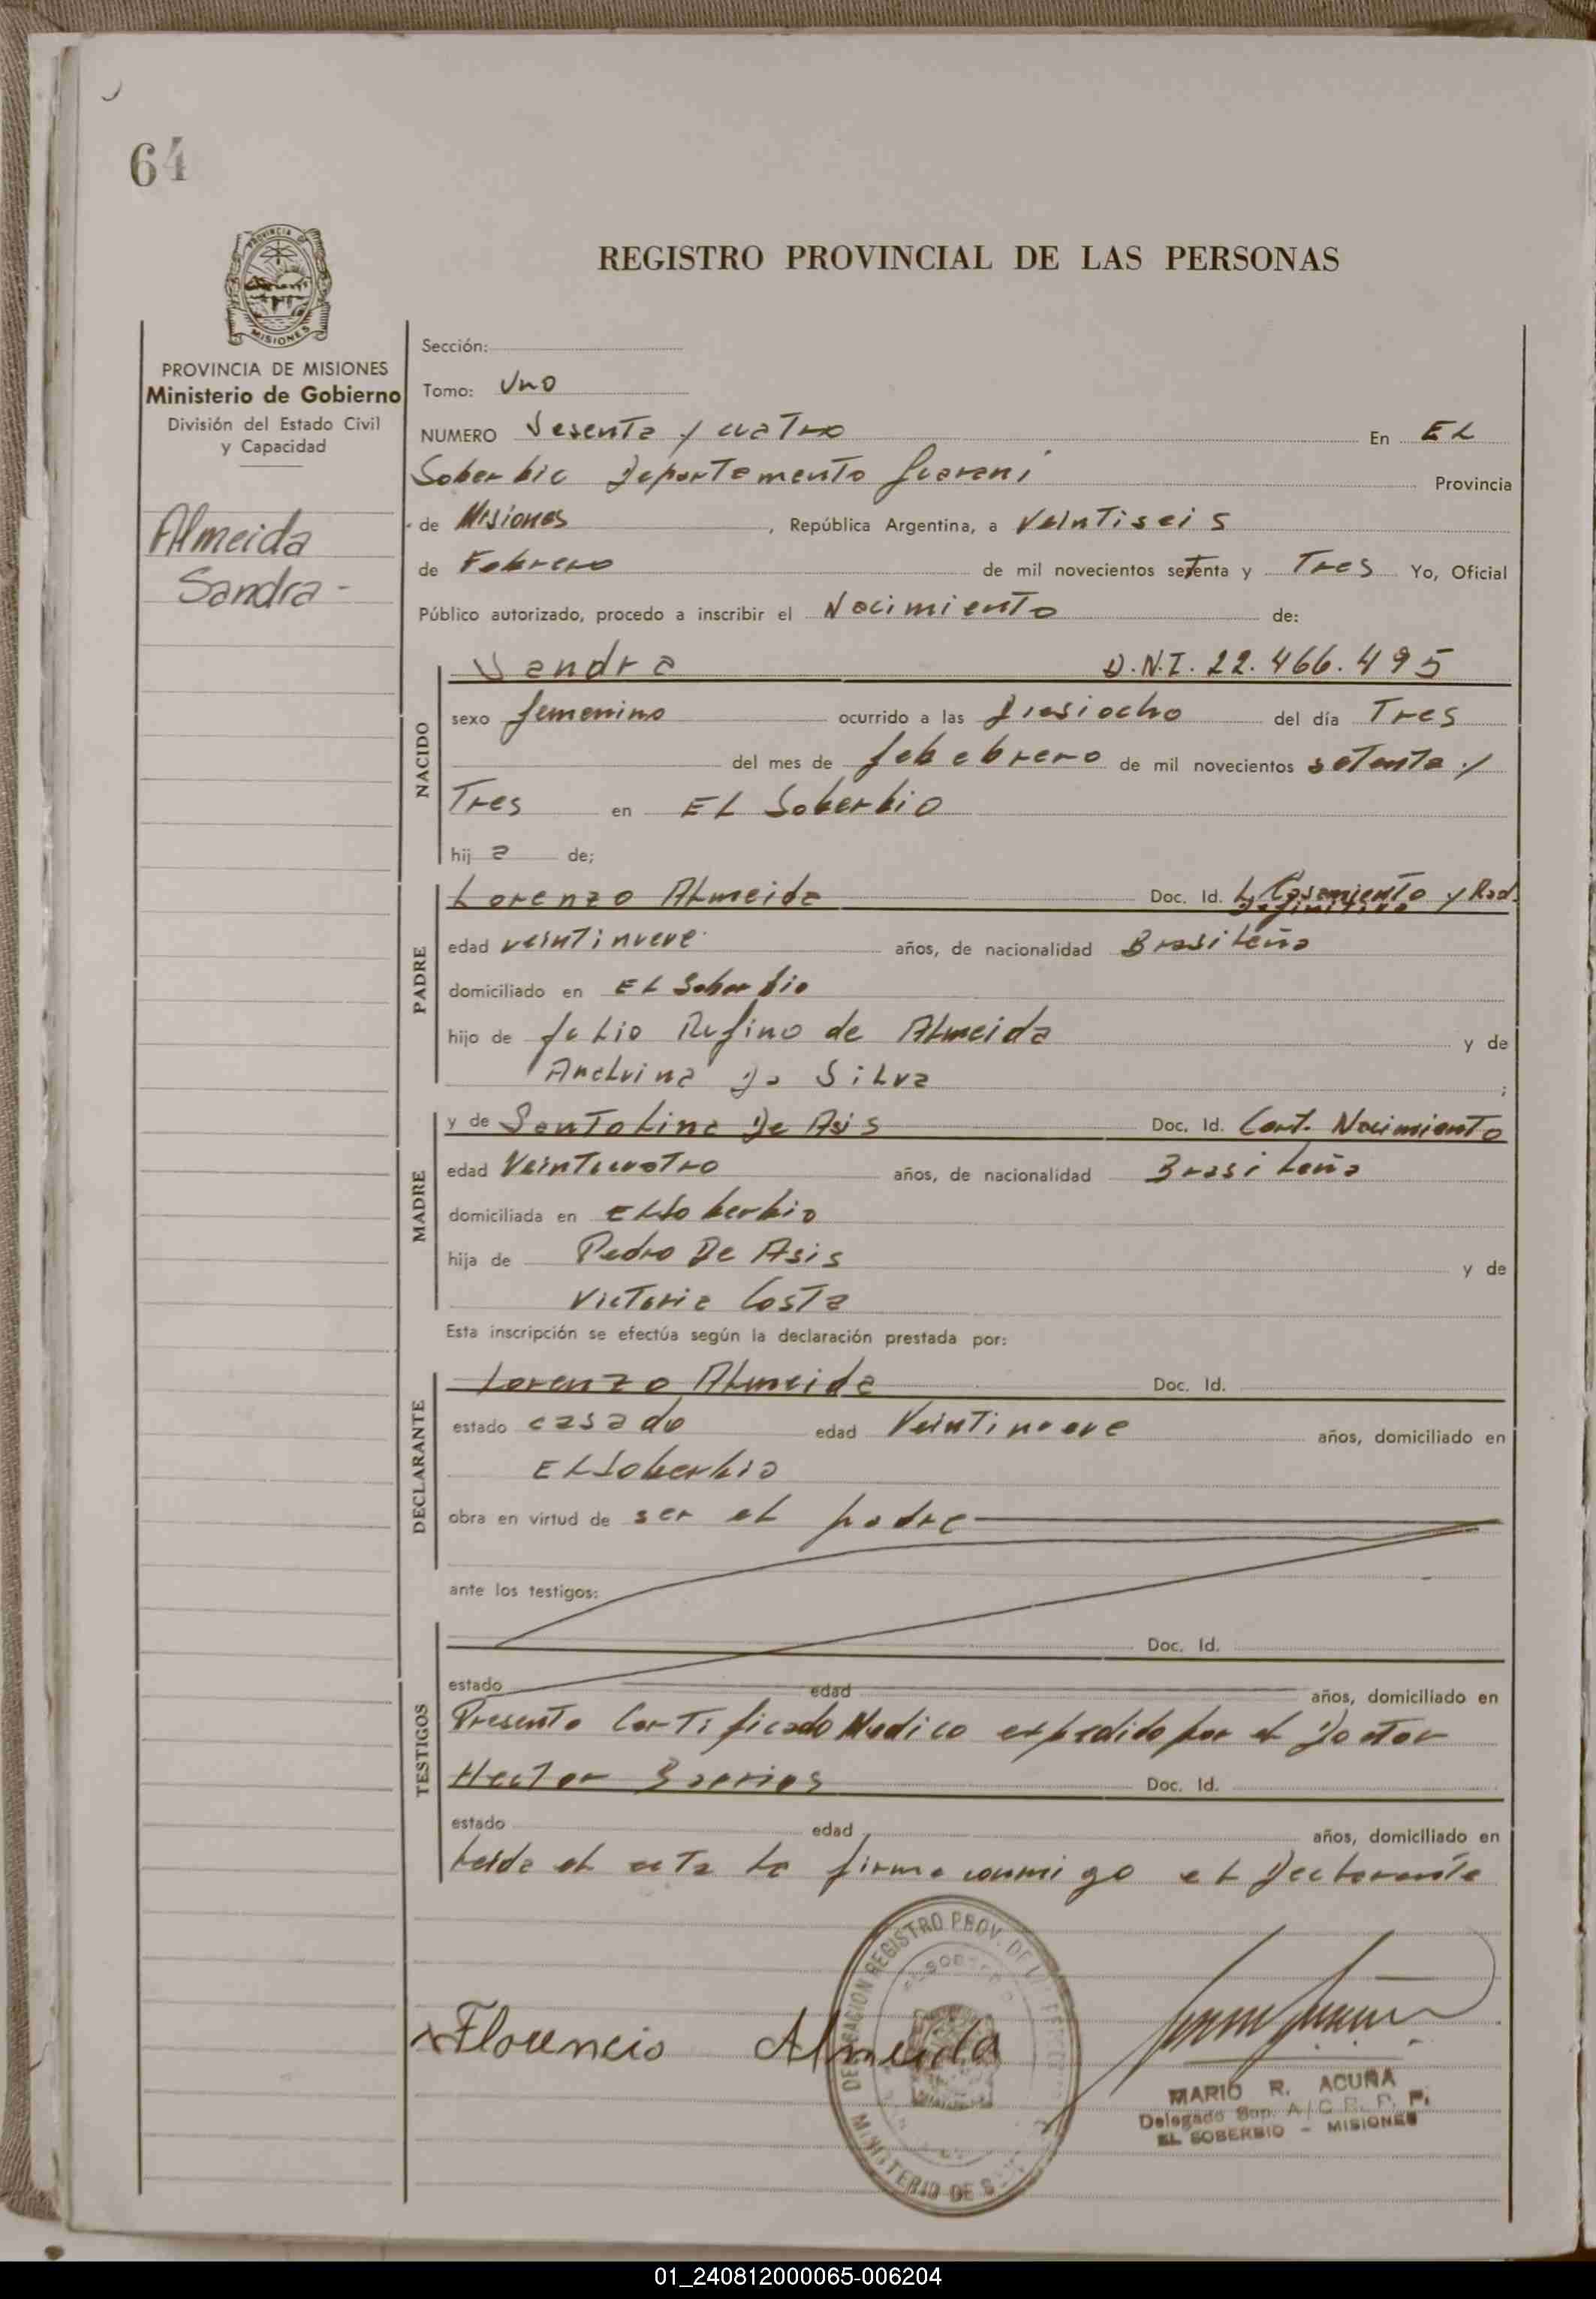 64
REGISTRO PROVINCIAL DE LAS PERSONAS
PROVINCIA DE MISIONES
Ministerio de Gobierno
División del Estado Civil
y Capacidad
Almeida
Sandra -
Sección:
Tomo: Uno
NUMERO Sesenta y cuatro En EL
Soberbio Departamento Guarani Provincia
de Misiones, República Argentina, a Veintiseis
de Febrero de mil novecientos setenta y Tres Yo, Oficial
Público autorizado, procedo a inscribir el Nacimiento de:
NACIDO
Sandra D.N.I. 22.466.495
sexo femenino ocurrido a las Diesiocho del día Tres
del mes de febebrero de mil novecientos setenta y
Tres en EL Soberbio
hij a de;
PADRE
Lorenzo Almeida Doc. Id. L. Casamiento y Rad.
Definitiva
edad veintinueve años, de nacionalidad Brasileña
domiciliado en EL Soberbio
hijo de Rufino de Almeida y de
Da Silva ;
MADRE
y de Santolina De Asis Doc. Id. Cert. Nacimiento
edad Veinticuatro años, de nacionalidad Brasileña
domiciliada en EL Soberbio
hija de Pedro De Asis y de
Victoria Costa
Esta inscripción se efectúa según la declaración prestada por:
DECLARANTE
Lorenzo Almeida Doc. Id.
estado casado edad Veintinueve años, domiciliado en
EL Soberbio
obra en virtud de ser el padre
ante los testigos:
TESTIGOS
Doc. Id.
estado edad años, domiciliado en
Presento Certificado Medico expedido por el Doctor
Hector Barrios Doc. Id.
estado edad años, domiciliado en
Leida el acta la firma conmigo el Declarante
Florencio Almeida
DELEGACION REGISTRO PROV. DE
MINISTERIO DE
MARIO R. ACUÑA
Delegado Sup. A/C R. P. P.
EL SOBERBIO - MISIONES
01_240812000065-006204